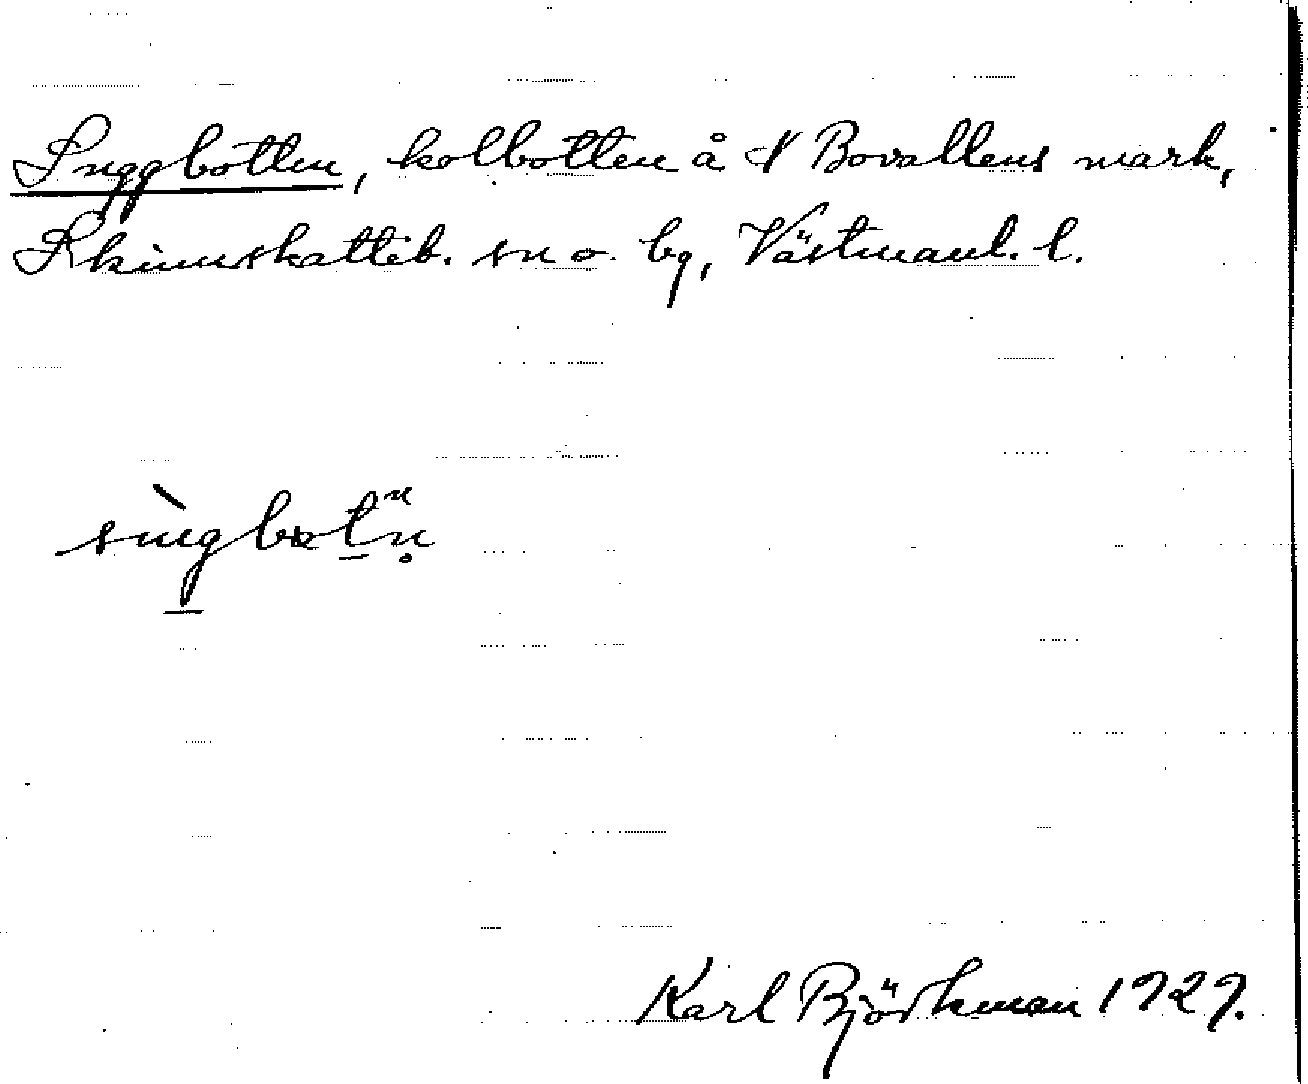 Suggbotten, kolbotten å N Bovallens mark,
Skinnskatteb. sn o. bg, Västmanl. l.
sùgbotn̥
Karl Björkman 1929.